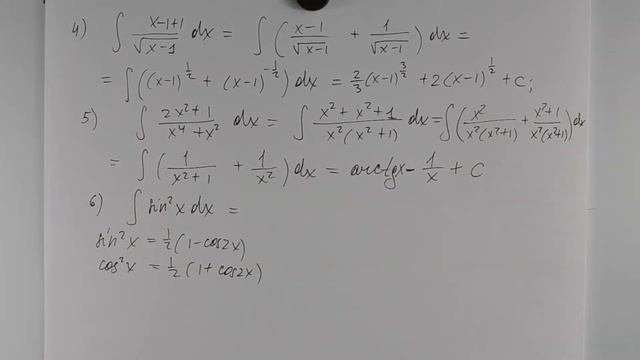 4) ∫ (x-1+1)/√(x-1) dx = ∫ ( (x-1)/√(x-1) + 1/√(x-1) ) dx =
= ∫ ((x-1)^(1/2) + (x-1)^(-1/2)) dx = 2/3 (x-1)^(3/2) + 2(x-1)^(1/2) + C;
5) ∫ (2x²+1)/(x⁴+x²) dx = ∫ (x²+x²+1)/(x²(x²+1)) dx = ∫ ( x²/(x²(x²+1)) + (x²+1)/(x²(x²+1)) ) dx
= ∫ ( 1/(x²+1) + 1/x² ) dx = arctgx - 1/x + C
6) ∫ sin²x dx =
sin²x = 1/2 (1-cos2x)
cos²x = 1/2 (1+cos2x)